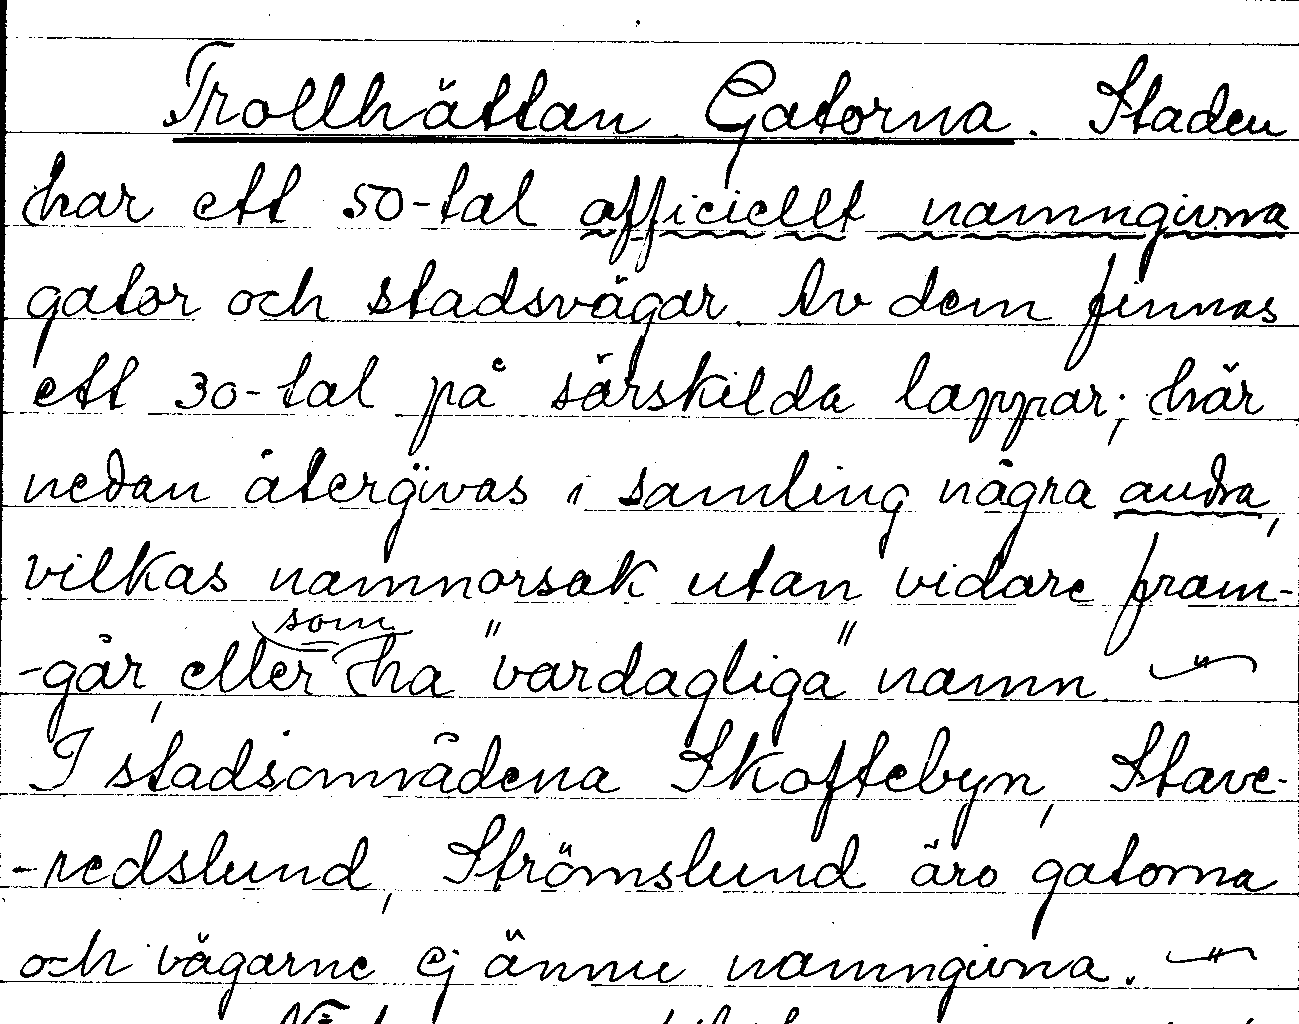 Trollhättan Gatorna. Staden
har ett 50-tal officiellt namngivna
gator och stadsvägar. Av dem finnas
ett 30-tal på särskilda lappar; här
nedan återgivas i samling några andra,
vilkas namnorsak utan vidare fram-
-går, eller som ha "vardagliga" namn. —"—
I stadsområdena Skoftebyn, Stave-
-redslund, Strömslund äro gatorna
och vägarne ej ännu namngivna. —"—